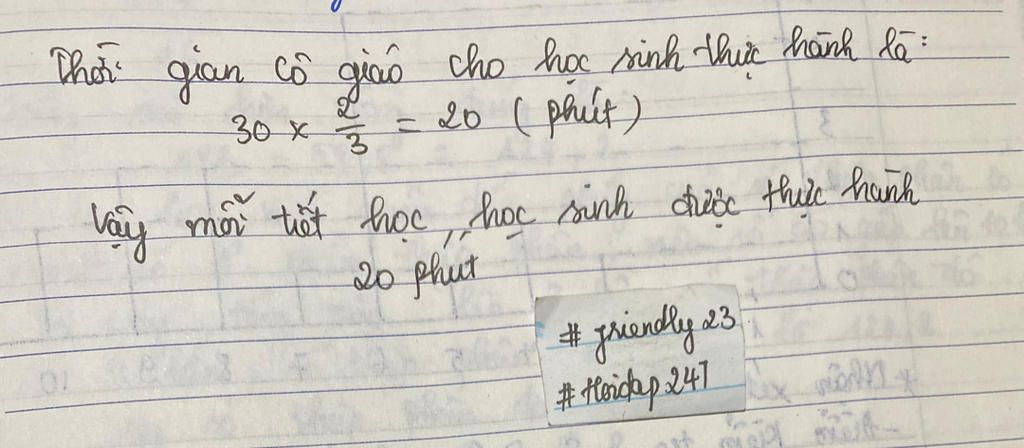 Thời gian cô giáo cho học sinh thực hành là:
30 x 2/3 = 20 (phút)
Vậy mỗi tiết học, học sinh được thực hành
20 phút
# friendly 23
# Hoidap 247